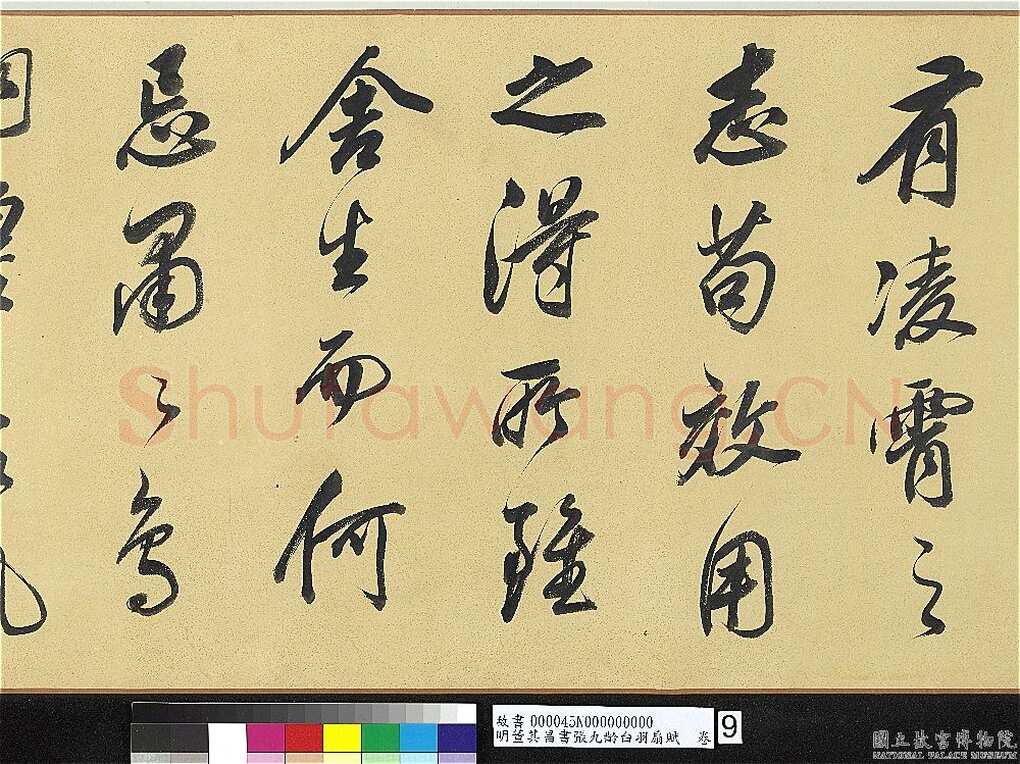 有凌霄之
志苟效用
之得所雖
舍生而何
忌肅〻鳥
Shufawang.CN
故書 000043N000000000
明董其昌書張九齡白羽扇賦 卷
9
國立故宮博物院
NATIONAL PALACE MUSEUM